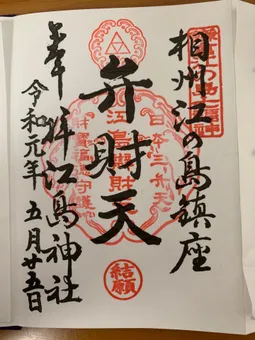 相州江の島鎮座
弁財天
奉拝江島神社
令和元年五月廿五日
日本三弁天
江島弁財天
結願